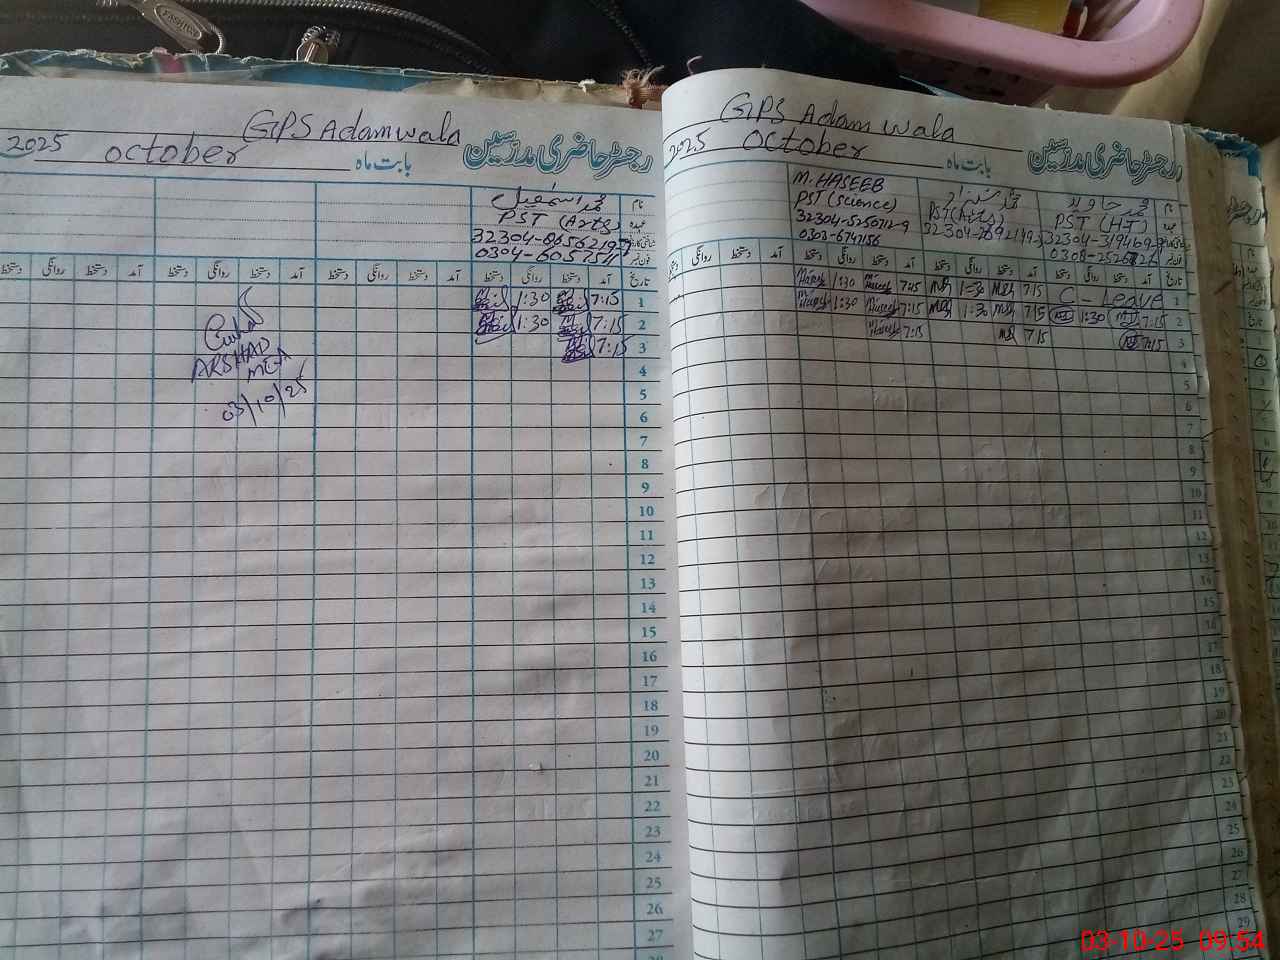 GPS Adamwala
رجسٹر حاضری مدرسین
بابت ماہ October 2025
محمد اسمٰعیل
PST (Arts)
0304-6057511
تاریخ آمد دستخط روانگی دستخط آمد دستخط روانگی دستخط آمد دستخط روانگی دستخط آمد دستخط روانگی
1 7:15 1:30
2 7:15 1:30
3 7:15
4
5
6
7
8
9
10
11
12
13
14
15
16
17
18
19
20
21
22
23
24
25
26
27
28
ARSHAD
MEA
03/10/25
GPS Adamwala
رجسٹر حاضری مدرسین
بابت ماہ October 2025
نام
عہدہ
محمد جاوید
PST (HT)
PST (Arts)
M. HASEEB
PST (Science)
32304-5250712-9
0303-6747156
تاریخ آمد دستخط روانگی دستخط آمد دستخط روانگی دستخط آمد دستخط روانگی دستخط آمد دستخط روانگی دستخط
1 C-Leave 7:15 1:30 7:15 Haseeb 1:30 Haseeb
2 7:15 1:30 7:15 1:30 7:15 Haseeb 1:30 Haseeb
3 7:15 7:15 7:15 Haseeb
4
5
6
7
8
9
10
11
12
13
14
15
16
17
18
19
20
21
22
23
24
25
26
27
28
29
FASHION
03-10-25 09:54